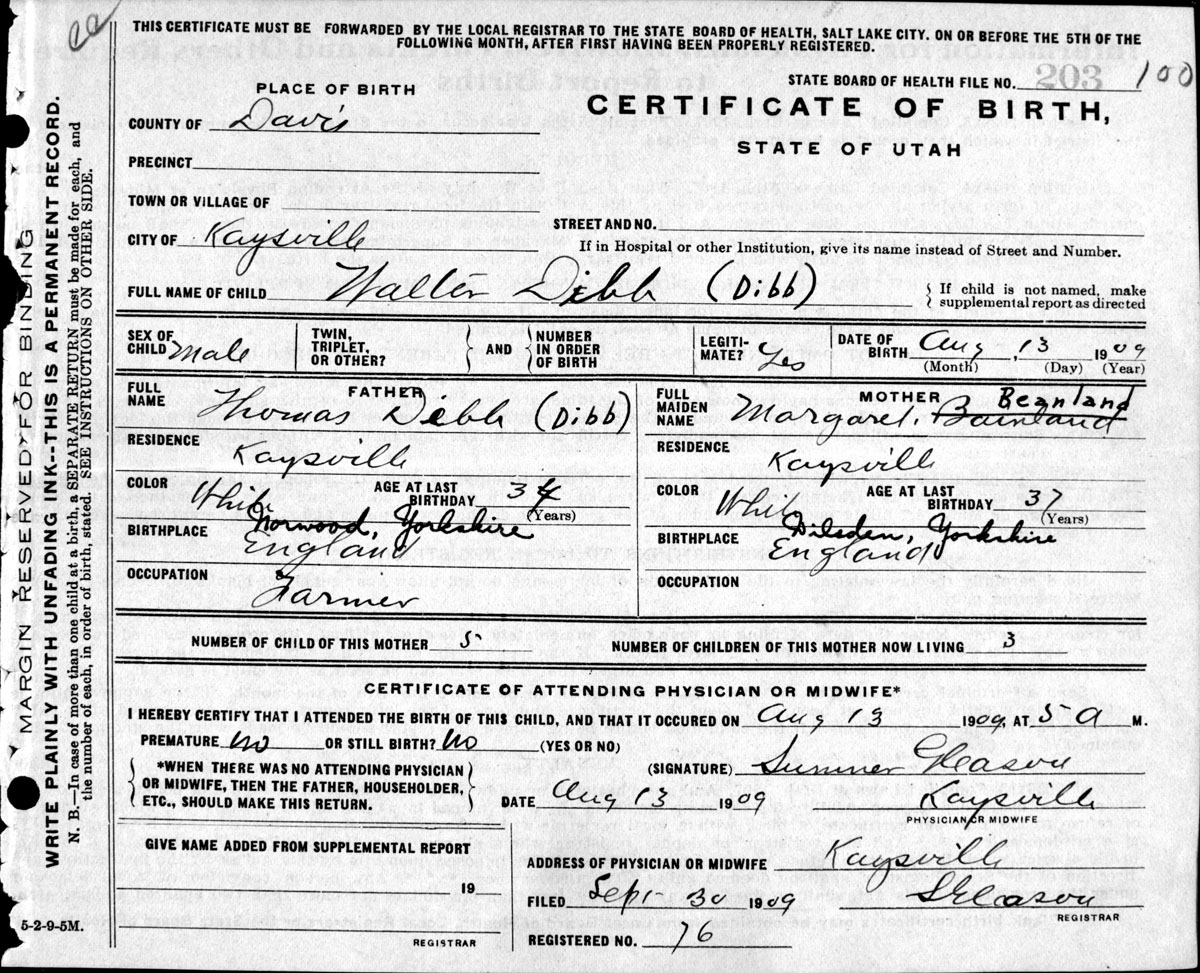 THIS CERTIFICATE MUST BE FORWARDED BY THE LOCAL REGISTRAR TO THE STATE BOARD OF HEALTH, SALT LAKE CITY. ON OR BEFORE THE 5TH OF THE
FOLLOWING MONTH, AFTER FIRST HAVING BEEN PROPERLY REGISTERED.
STATE BOARD OF HEALTH FILE NO. 203 100
PLACE OF BIRTH
CERTIFICATE OF BIRTH,
STATE OF UTAH
COUNTY OF Davis
PRECINCT
TOWN OR VILLAGE OF
STREET AND NO.
CITY OF Kaysville
If in Hospital or other Institution, give its name instead of Street and Number.
FULL NAME OF CHILD Walter Dibb (Dibb)
{ If child is not named, make
supplemental report as directed
SEX OF CHILD Male
TWIN, TRIPLET, OR OTHER? } AND { NUMBER IN ORDER OF BIRTH
LEGITIMATE? Yes
DATE OF BIRTH Aug 13 1909
(Month) (Day) (Year)
FATHER
FULL NAME Thomas Debb (Dibb)
RESIDENCE
Kaysville
COLOR White
AGE AT LAST BIRTHDAY 34
(Years)
BIRTHPLACE Norwood, Yorkshire
England
OCCUPATION
Farmer
MOTHER Beanland
FULL MAIDEN NAME Margaret Bainland
RESIDENCE
Kaysville
COLOR White
AGE AT LAST BIRTHDAY 37
(Years)
BIRTHPLACE Silsden, Yorkshire
England
OCCUPATION
NUMBER OF CHILD OF THIS MOTHER 5
NUMBER OF CHILDREN OF THIS MOTHER NOW LIVING 3
CERTIFICATE OF ATTENDING PHYSICIAN OR MIDWIFE*
I HEREBY CERTIFY THAT I ATTENDED THE BIRTH OF THIS CHILD, AND THAT IT OCCURED ON Aug 13 1909, AT 5 a M.
PREMATURE no OR STILL BIRTH? no (YES OR NO)
{ *WHEN THERE WAS NO ATTENDING PHYSICIAN
OR MIDWIFE, THEN THE FATHER, HOUSEHOLDER,
ETC., SHOULD MAKE THIS RETURN. }
(SIGNATURE) Sumner Gleason
DATE Aug 13 1909 Kaysville
PHYSICIAN OR MIDWIFE
GIVE NAME ADDED FROM SUPPLEMENTAL REPORT
19
REGISTRAR
ADDRESS OF PHYSICIAN OR MIDWIFE Kaysville
FILED Sept 30 1909 S Gleason
REGISTRAR
REGISTERED NO. 76
5-2-9-5M.
MARGIN RESERVED FOR BINDING
WRITE PLAINLY WITH UNFADING INK--THIS IS A PERMANENT RECORD.
N. B.—In case of more than one child at a birth, a SEPARATE RETURN must be made for each, and
the number of each, in order of birth, stated. SEE INSTRUCTIONS ON OTHER SIDE.